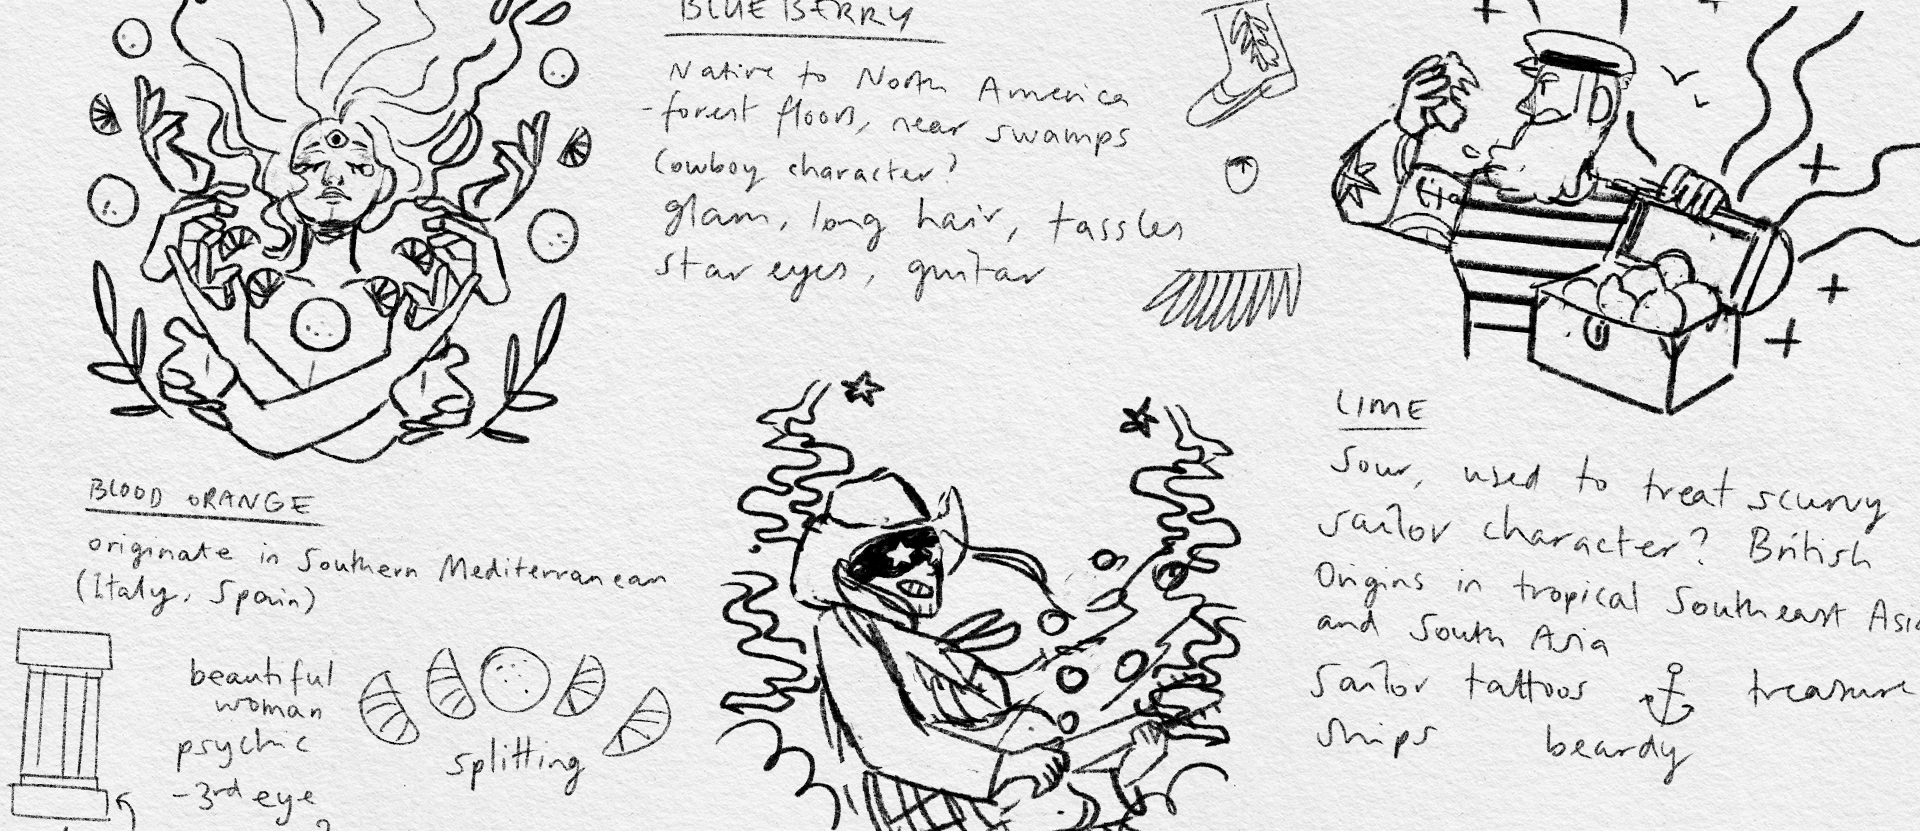 BLUEBERRY
Native to North America
-forest floors, near swamps
Cowboy character?
glam, long hair, tassles
star eyes, guitar
BLOOD ORANGE
originate in Southern Mediterranean
(Italy, Spain)
beautiful
woman
psychic
-3rd eye
splitting
LIME
Sour, used to treat scurvy
sailor character? British
Origins in tropical Southeast Asia
and South Asia
sailor tattoos treasure
ships beardy